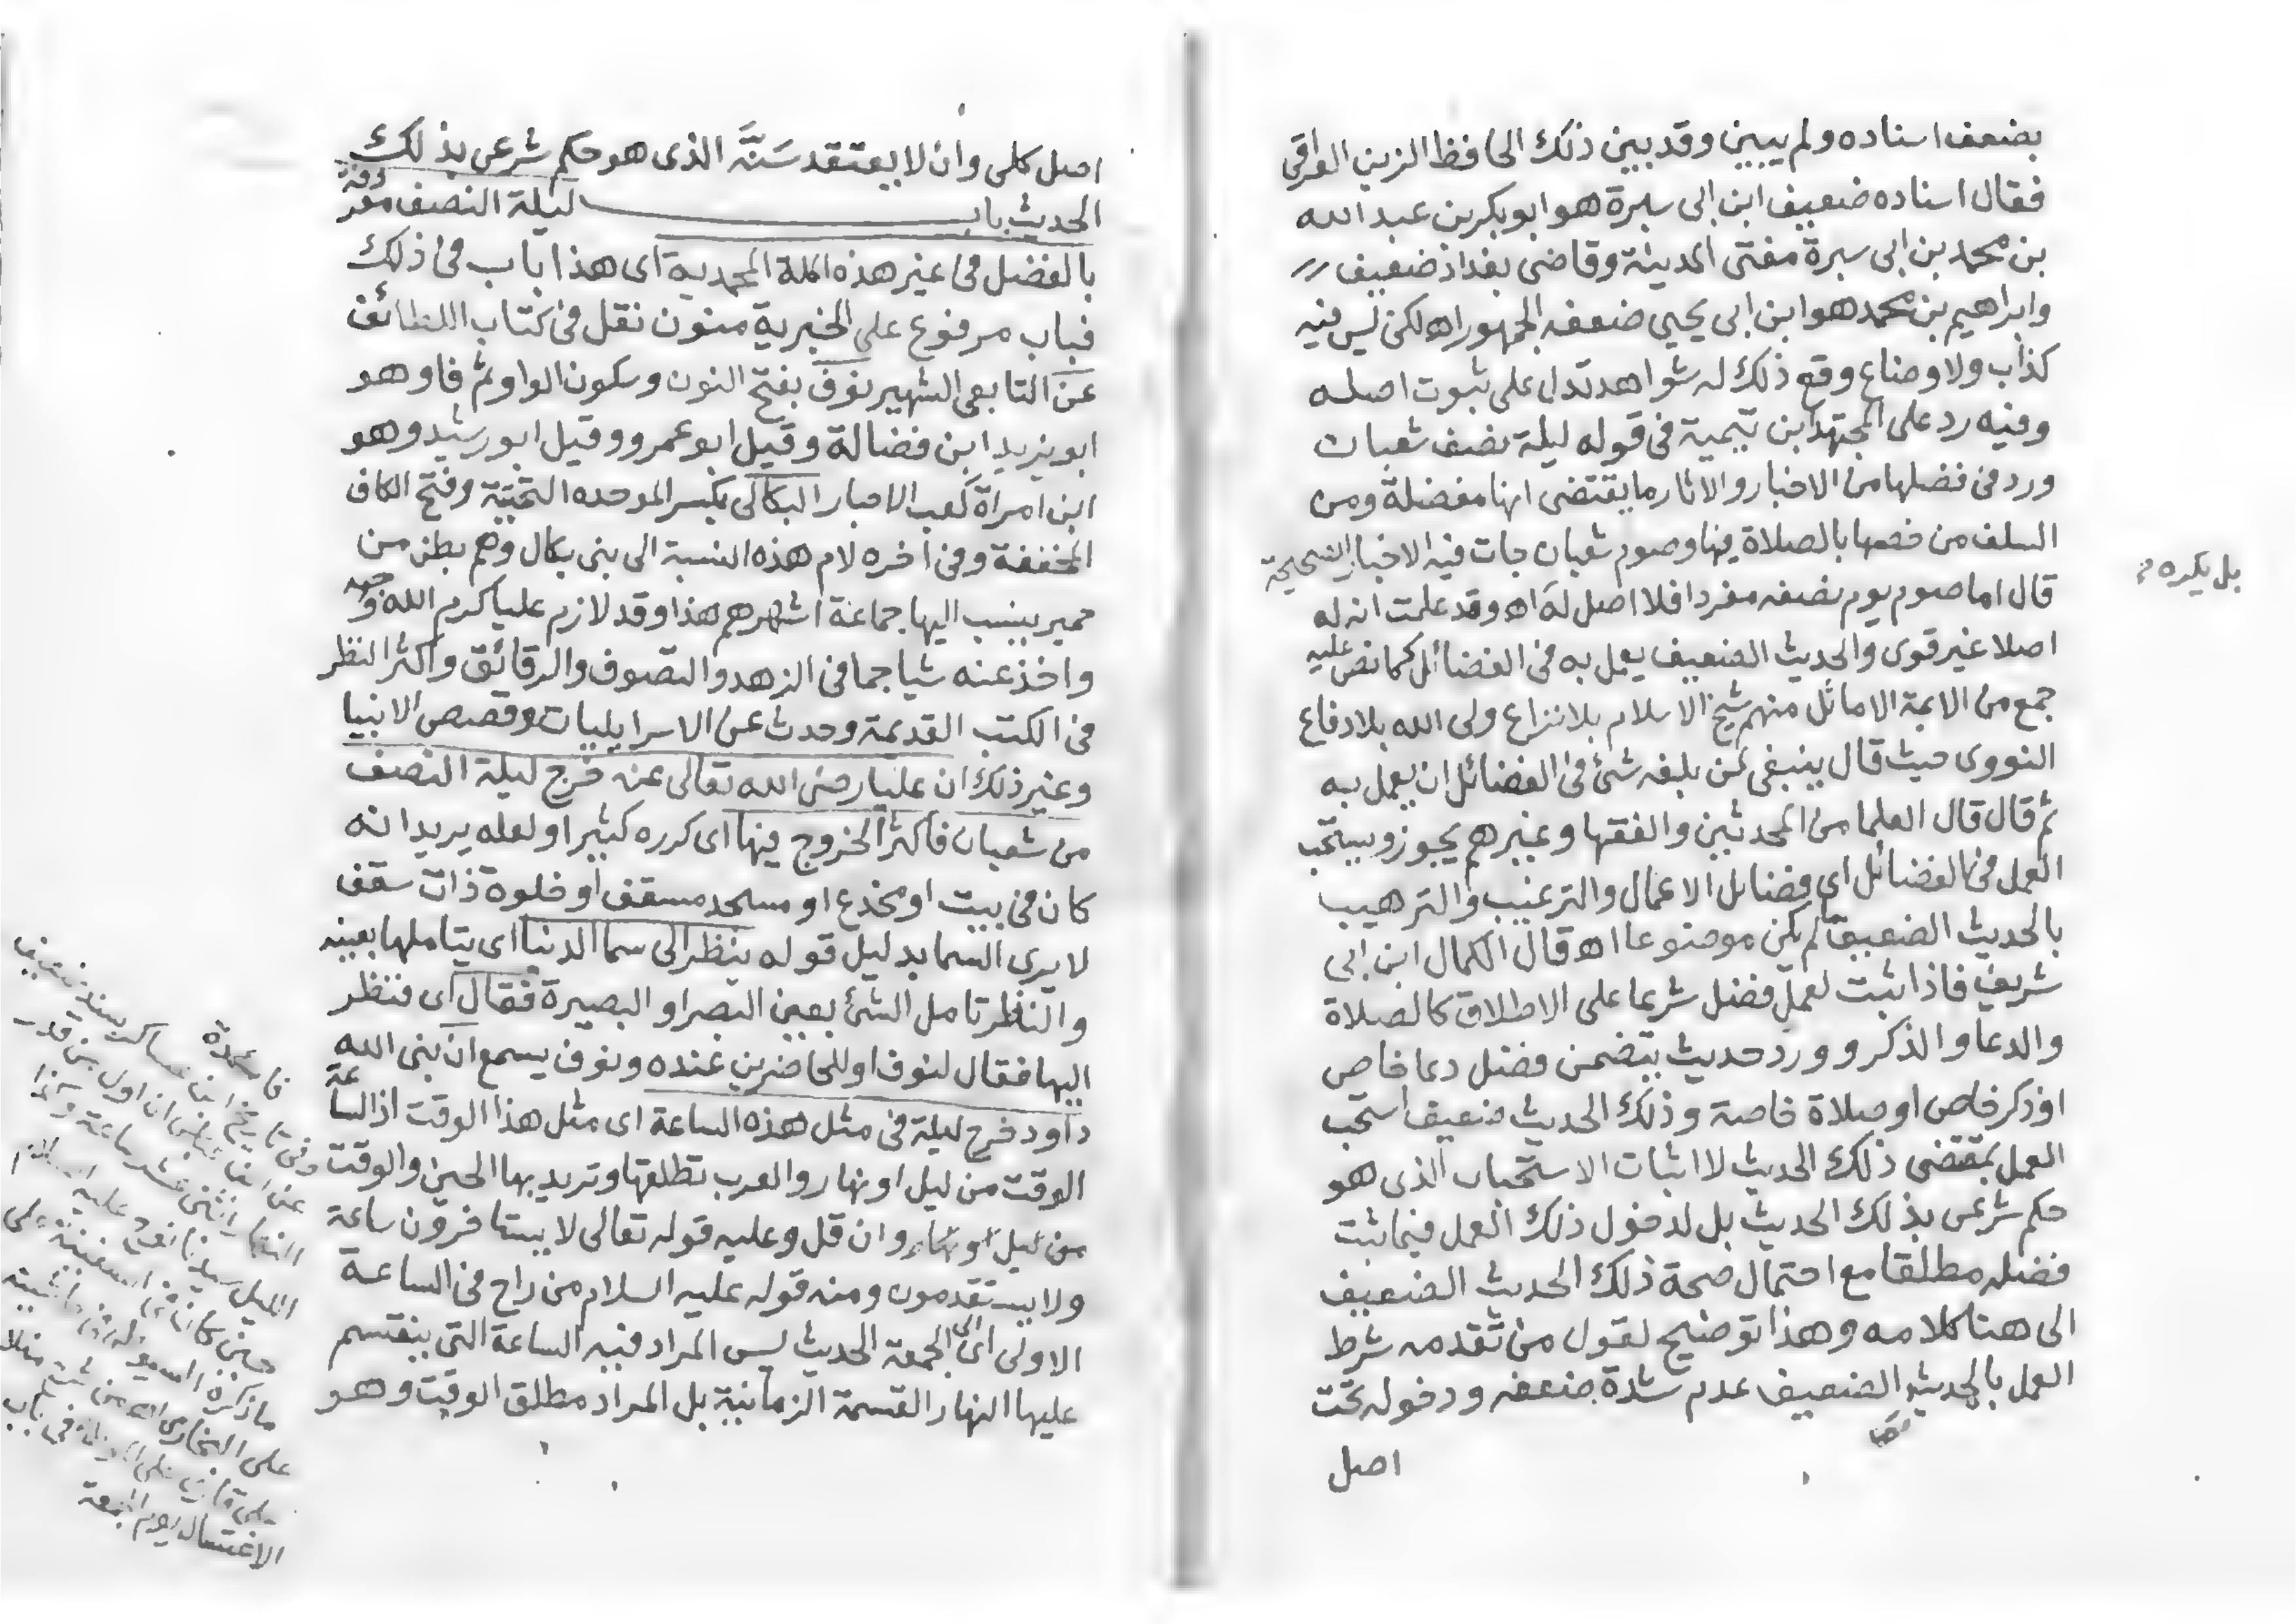 بضعف اسناده ولم يبين وقد بين ذلك الحافظ الزين العراقي
فقال اسناده ضعيف ابن ابى سبرة هو ابو بكر بن عبد الله
بن محمد بن ابى سبرة مفتى المدينة وقاضى بغداد ضعيف
وابراهيم بن محمد هو ابن ابى يحيى ضعفه الجمهور اه لكن ليس فيه
كذاب ولا وضاع وقع ذلك له شواهد تدل على ثبوت اصله
وفيه رد على المجتهد ابن تيمية فى قوله ليلة نصف شعبان
ورد فى فضلها من الاخبار والاثار ما يقتضى انها مفضلة ومن
السلف من خصها بالصلاة فيها وصوم شعبان جات فيه الاخبار الصحيحة
قال اما صوم يوم نصفه مفردا فلا اصل له اه وقد علمت ان له
بل يكره
اصلا غير قوى والحديث الضعيف يعمل به فى الفضائل كما نص عليه
جمع من الايمة الاماثل منهم شيخ الاسلام بلا نزاع ولى الله بلا دفاع
النووى حيث قال ينبغى لمن بلغه شئ فى الفضائل ان يعمل به
ثم قال قال العلما من المحدثين والفقها وغيرهم يجوز ويستحب
العمل فى الفضائل اى فضائل الاعمال والترغيب والترهيب
بالحديث الضعيف لم يكن موضوعا اه قال الكمال ابن ابى
شريف فاذا ثبت لعمل فضل شرعا على الاطلاق كالصلاة
والدعا والذكر وورد حديث يتضمن فضل دعا خاص
او ذكر خاص او صلاة خاصة وذلك الحديث ضعيف استحب
العمل بمقتضى ذلك الحديث لا اثبات الاستحباب الذى هو
حكم شرعى بذلك الحديث بل لدخول ذلك العمل فيما ثبت
فضله مطلقا مع احتمال صحة ذلك الحديث الضعيف
الى هنا كلامه وهذا توضيح لقول من تقدمه شرط
العمل بالحديث الضعيف عدم شدة ضعفه ودخوله تحت
اصل
اصل كلى وان لا يعتقد سَنَّه الذى هو حكم شرعى بذلك
الحديث باب ليلة النصف معروفة
بالفضل فى غير هذه الملة المحمدية اى هذا باب فى ذلك
فباب مرفوع على الخبرية منون نقل فى كتاب اللطائف
عن التابعى الشهير نوف بفتح النون وسكون الواو ثم فا وهو
ابو يزيد ابن فضالة وقيل ابو عمرو وقيل ابو رشيد وهو
ابن امرأة كعب الاحبار البكالى بكسر الموحده التحتية وفتح الكاف
المخففة وفى آخره لام هذه النسبة الى بنى بكال وهم بطن من
حمير ينسب اليها جماعة اشهرهم هذا وقد لازم عليا كرم الله وجهه
واخذ عنه شيا جما فى الزهد والتصوف والرقائق واكثر النظر
فى الكتب القديمة وحدث عن الاسرايليات وقصص الانبيا
وغير ذلك ان عليا رضى الله تعالى عنه خرج ليلة النصف
من شعبان فاكثر الخروج فيها اى كرره كثيرا ولعله يريد انه
كان فى بيت او مخدع او مسجد مسقف او خلوة ذات سقف
لا يرى السما بدليل قوله ينظر الى سما الدنيا اى يتاملها بعينه
والنظر تامل الشئ بعين البصر او البصيرة فقال اى فنظر
اليها فقال لنوف او للحاضرين عنده ونوف يسمع ان نبى الله
داود خرج ليلة فى مثل هذه الساعة اى مثل هذا الوقت اذ الساعة
الوقت من ليل او نهار والعرب تطلقها وتريد بها الحين والوقت
من ليل او نهار وان قل وعليه قوله تعالى لا يستاخرون ساعة
ولا يستقدمون ومنه قوله عليه السلام من راح فى الساعة
الاولى اى الى الجمعة الحديث ليس المراد فيه الساعة التى ينقسم
عليها النهار القسمة الزمانية بل المراد مطلق الوقت وهو
فائدة
وفى تاريخ ابن عساكر بسند ضعيف
عن ابن عباس ان اول من قدر
النهار اثنى عشر ساعة وكذا
الليل سيدنا نوح عليه السلام
حين كان فى السفينة
ما ذكره السيوطى فى حاشيته
على البخارى
على قارى
الاغتسال يوم الجمعة